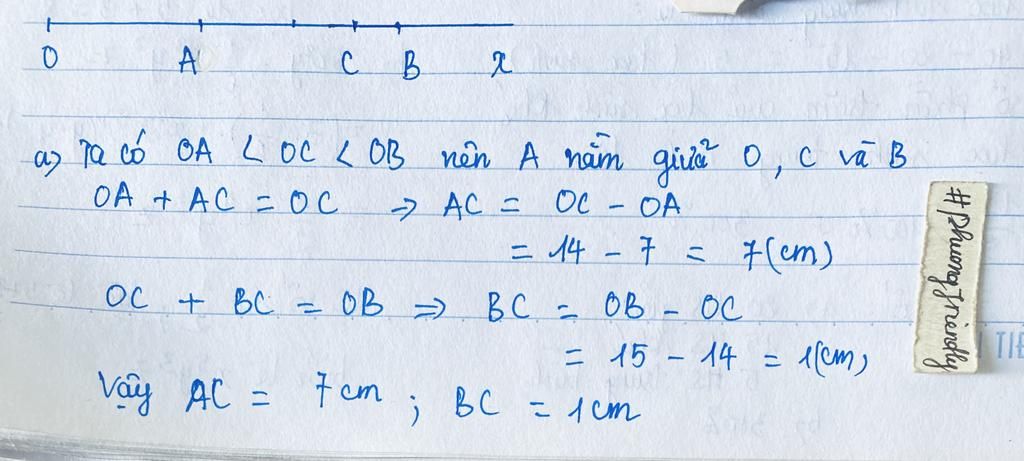 O A C B x
a) Ta có OA < OC < OB nên A nằm giữa O, C và B
OA + AC = OC → AC = OC - OA
= 14 - 7 = 7(cm)
OC + BC = OB ⇒ BC = OB - OC
= 15 - 14 = 1(cm)
Vậy AC = 7cm ; BC = 1cm
#phuongfriendly
TIẾ